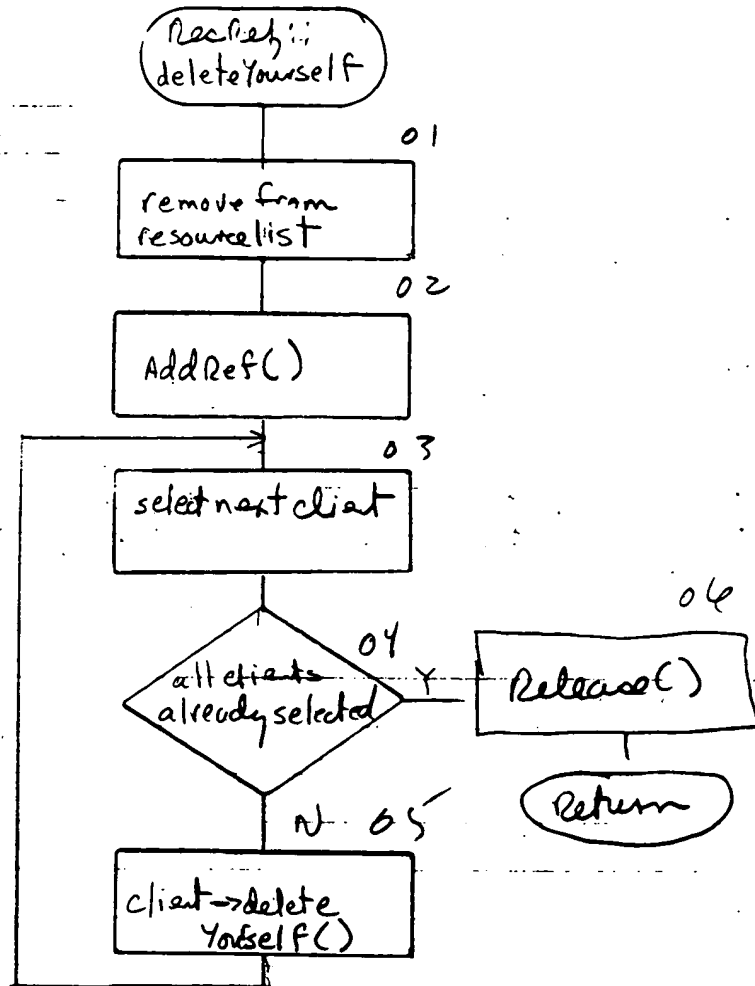 deleteYourself
01
remove from
resource list
02
AddRef()
03
select next client
04
all clients
already selected
Y
06
Release()
Return
N 05
client->delete
Yourself()